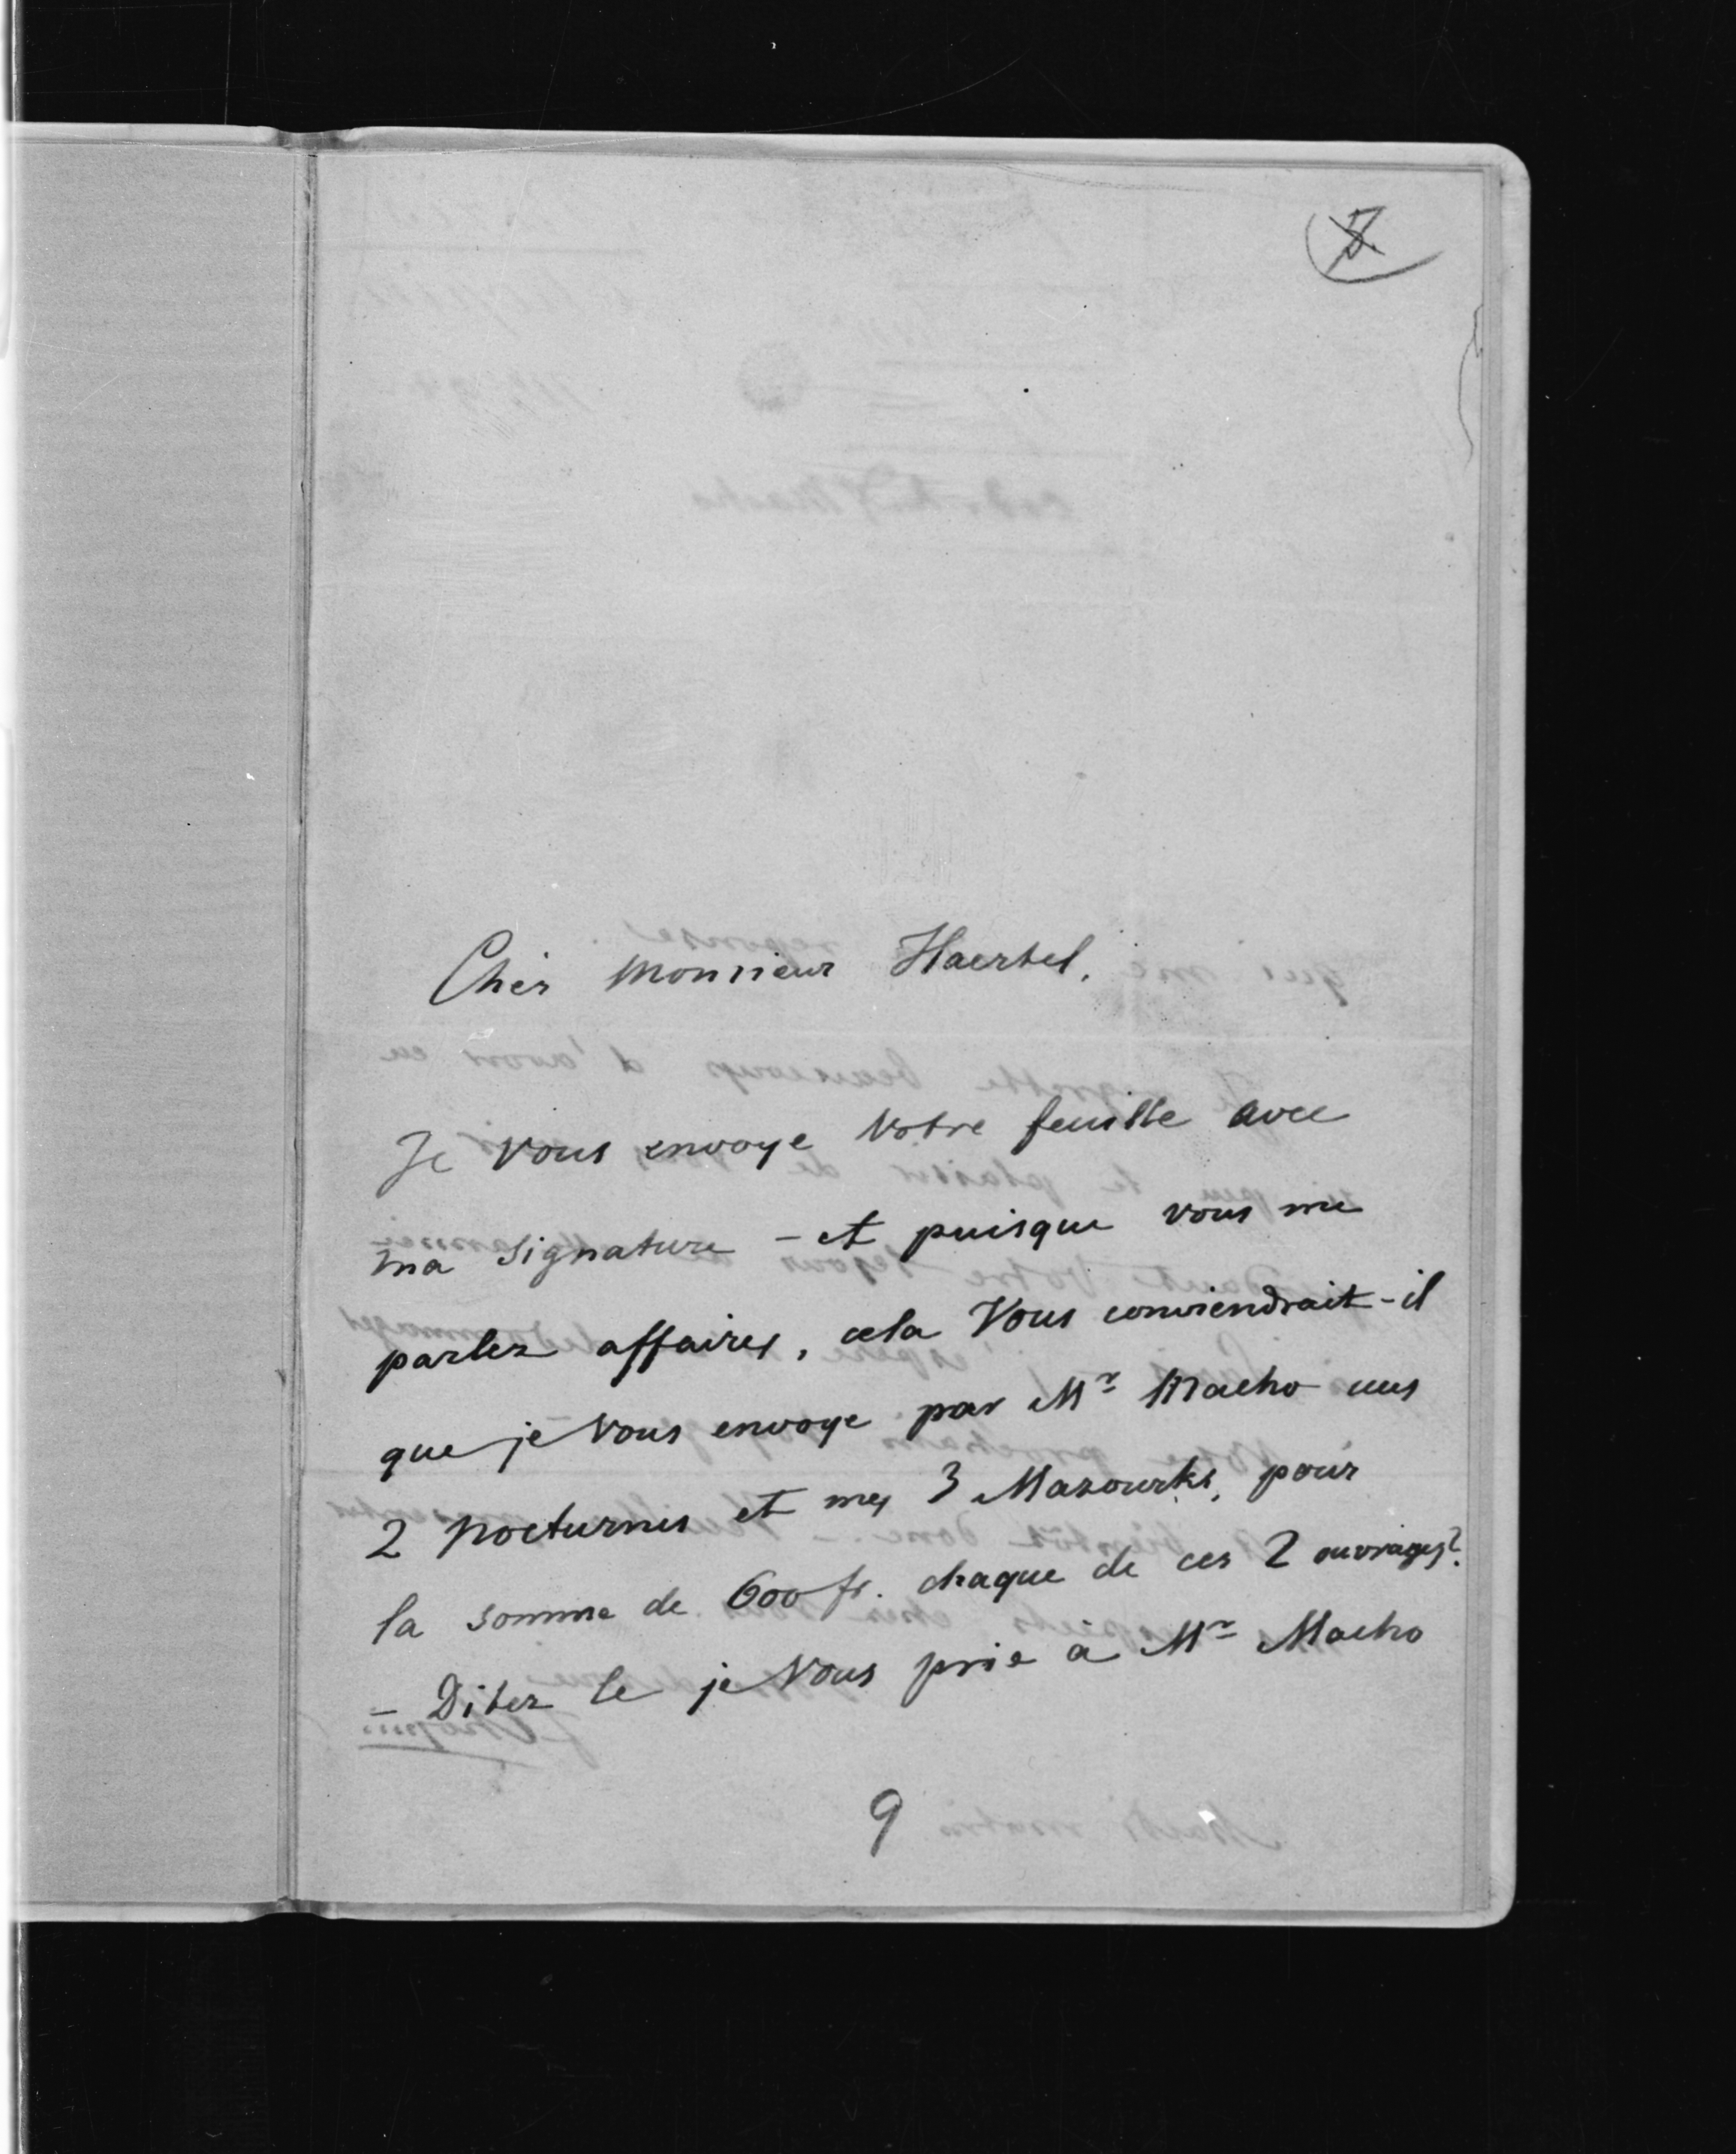 5.
Cher Monsieur Haertel.
Je Vous envoye Votre feuille avec
ma signature – et puisque vous me
parlez affaires, cela Vous conviendrait-il
que je Vous envoye par Mr Maho mes
2 Nocturnes et mes 3 Mazourks, pour
la somme de 600 fr. chaque de ces 2 ouvrages?
– Dites le je Vous prie à Mr Maho
9